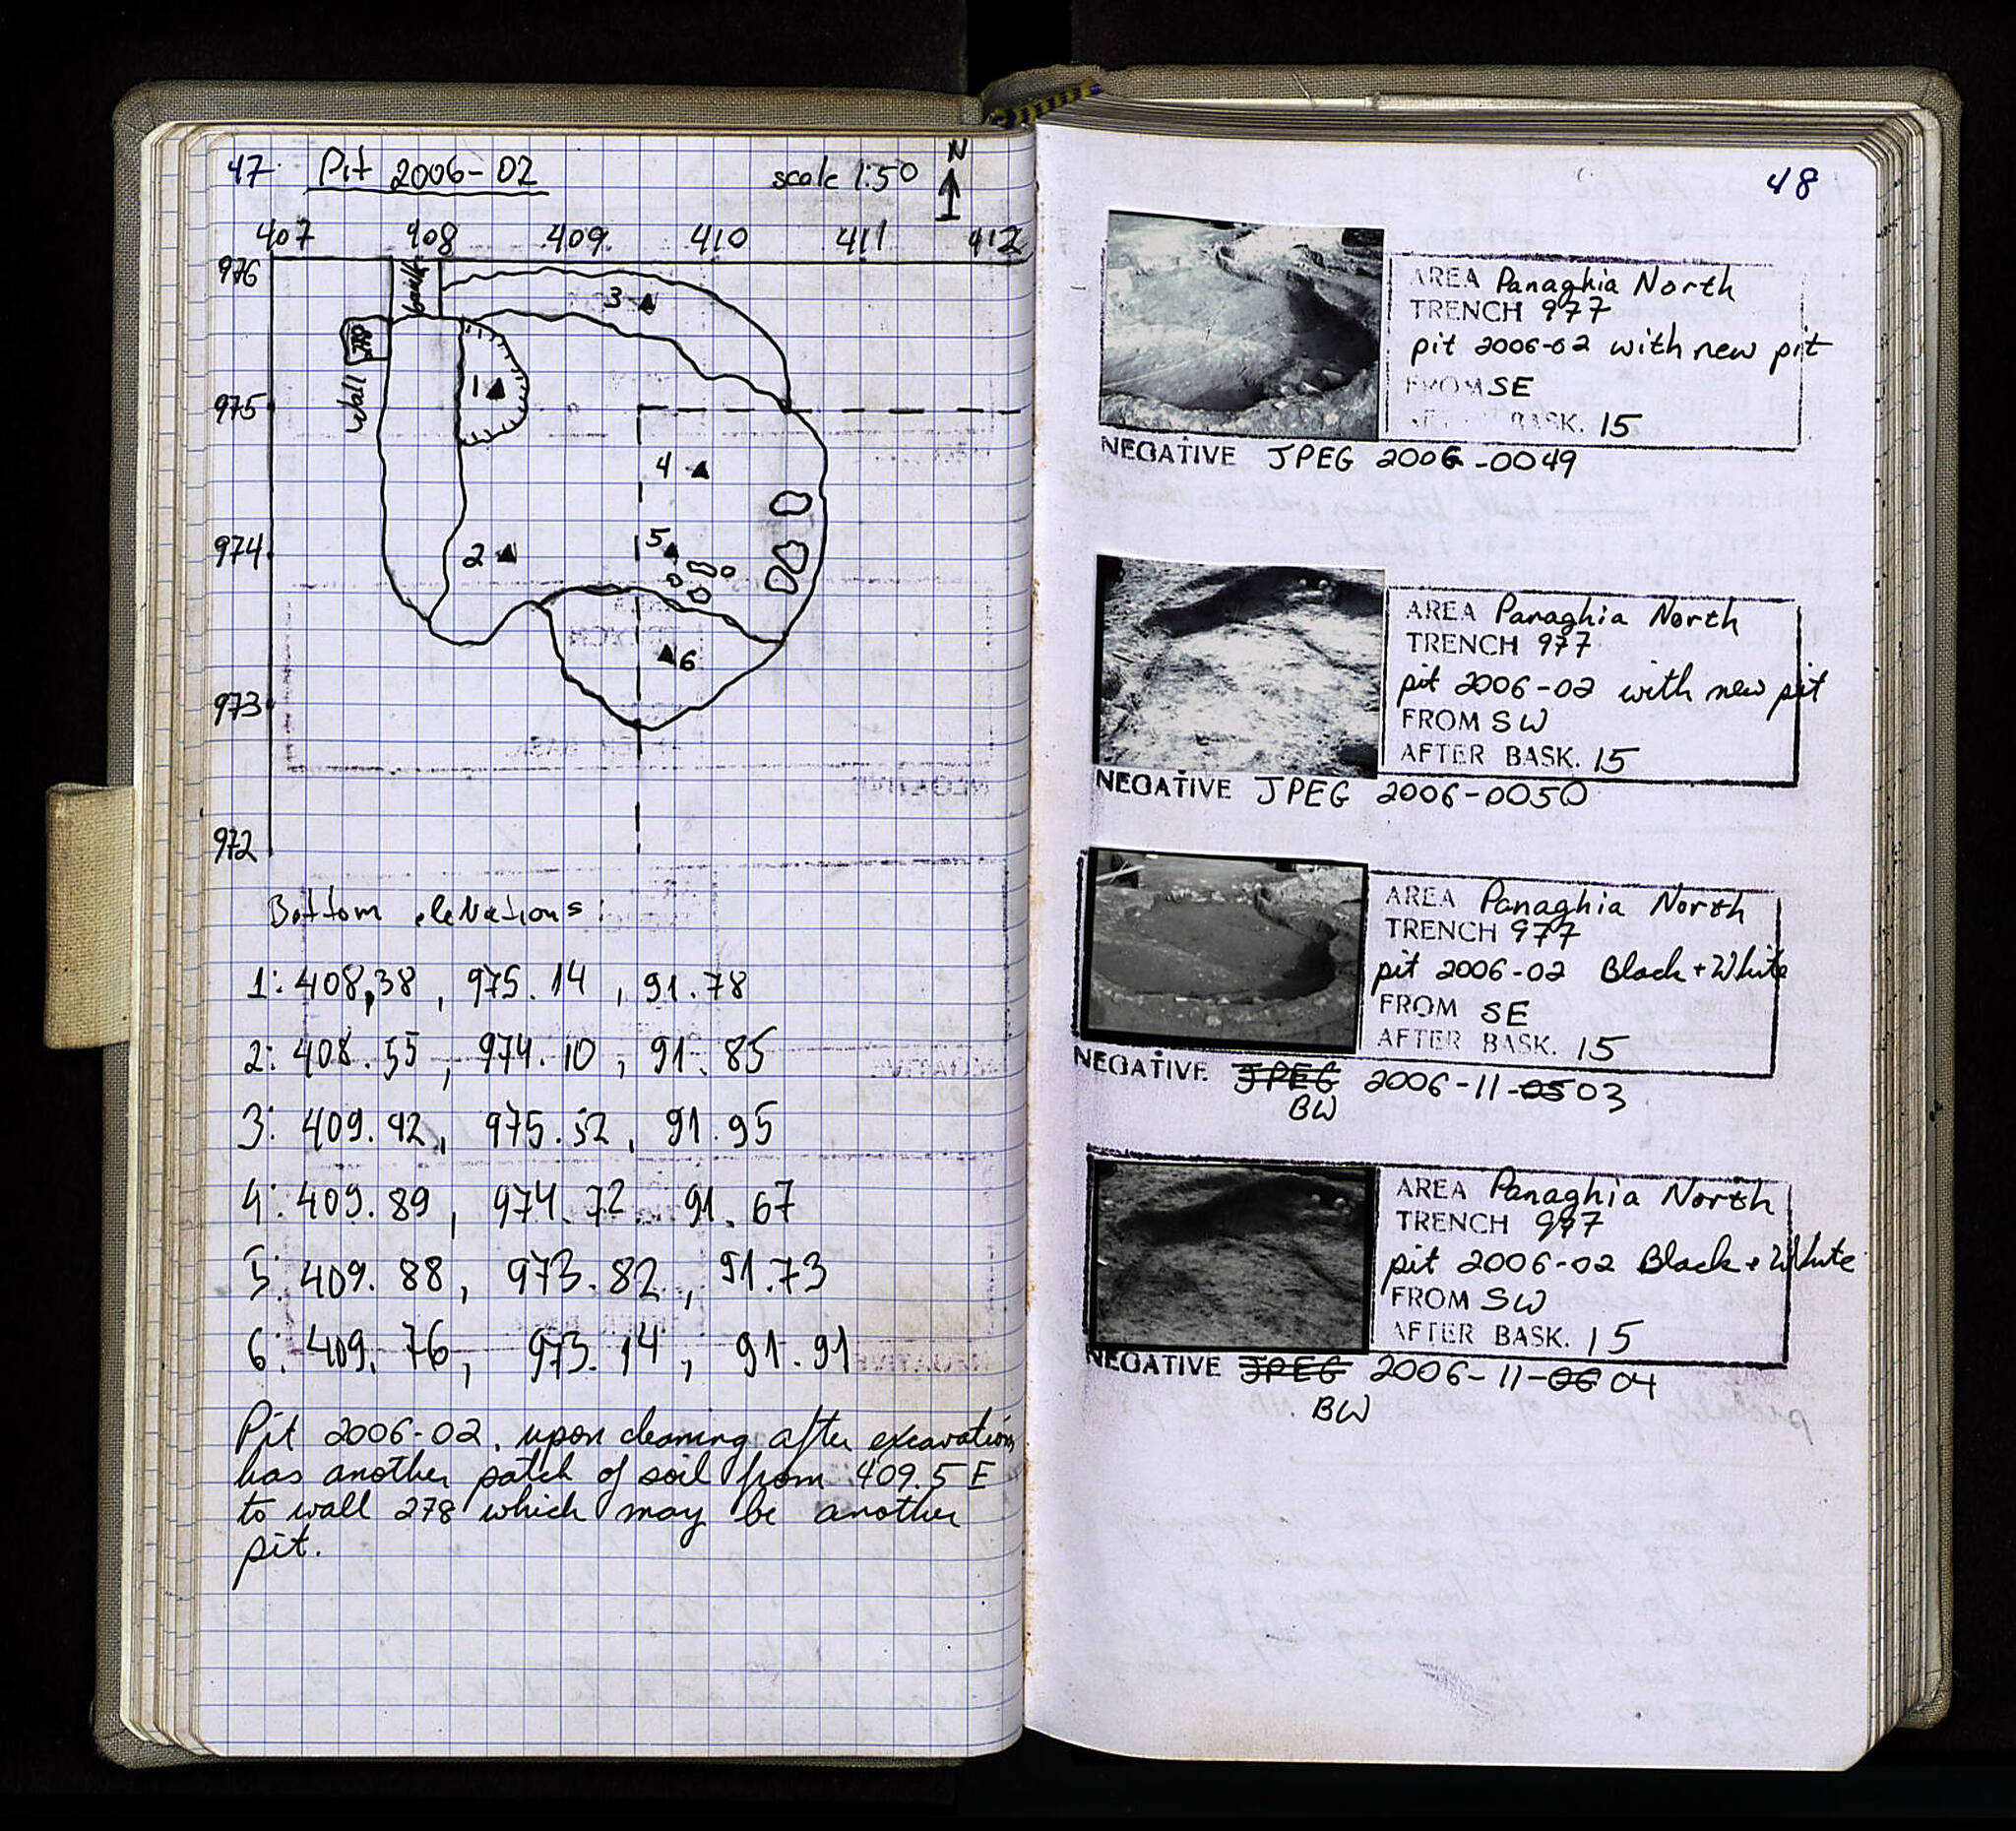 47. Pit 2006-02 scale 1:50 N
407 408 409 410 411 412
976
baulk
3
Wall
1
975
4
974
2
5
6
973
972
Bottom elevations:
1: 408,38, 975.14, 91.78
2: 408.55, 974.10, 91.85
3: 409.42, 975.52, 91.95
4: 409.89, 974.72. 91.67
5: 409.88, 973.82, 91.73
6: 409.76, 973.14, 91.91
Pit 2006-02, upon cleaning after excavation,
has another patch of soil from 409.5 E
to wall 278 which may be another
pit.
48
AREA Panaghia North
TRENCH 977
pit 2006-02 with new pit
FROM SE
BASK. 15
NEGATIVE JPEG 2006-0049
AREA Panaghia North
TRENCH 977
pit 2006-02 with new pit
FROM SW
AFTER BASK. 15
NEGATIVE JPEG 2006-0050
AREA Panaghia North
TRENCH 977
pit 2006-02 Black + White
FROM SE
AFTER BASK. 15
NEGATIVE JPEG 2006-11-05 03
BW
AREA Panaghia North
TRENCH 977
pit 2006-02 Black + White
FROM SW
AFTER BASK. 15
NEGATIVE JPEG 2006-11-06 04
BW